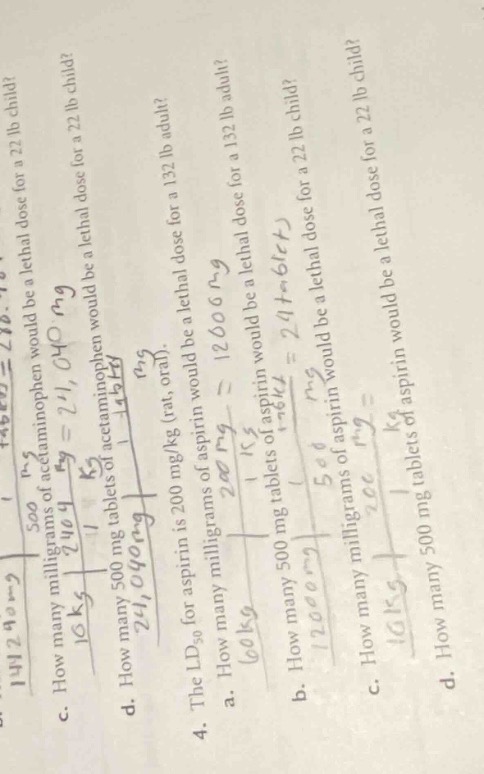 144240mg 1 tablet =
500 mg
c. How many milligrams of acetaminophen would be a lethal dose for a 22 lb child?
10 kg 2404 mg = 24,040 mg
1 kg
d. How many 500 mg tablets of acetaminophen would be a lethal dose for a 22 lb child?
24,040mg 1 tablet
mg
4. The LD50 for aspirin is 200 mg/kg (rat, oral).
a. How many milligrams of aspirin would be a lethal dose for a 132 lb adult?
60kg 200 mg = 12000mg
1 kg
b. How many 500 mg tablets of aspirin would be a lethal dose for a 132 lb adult?
12000mg 1 tablet = 24 tablets
500 mg
c. How many milligrams of aspirin would be a lethal dose for a 22 lb child?
10kg 200 mg =
1 kg
d. How many 500 mg tablets of aspirin would be a lethal dose for a 22 lb child?